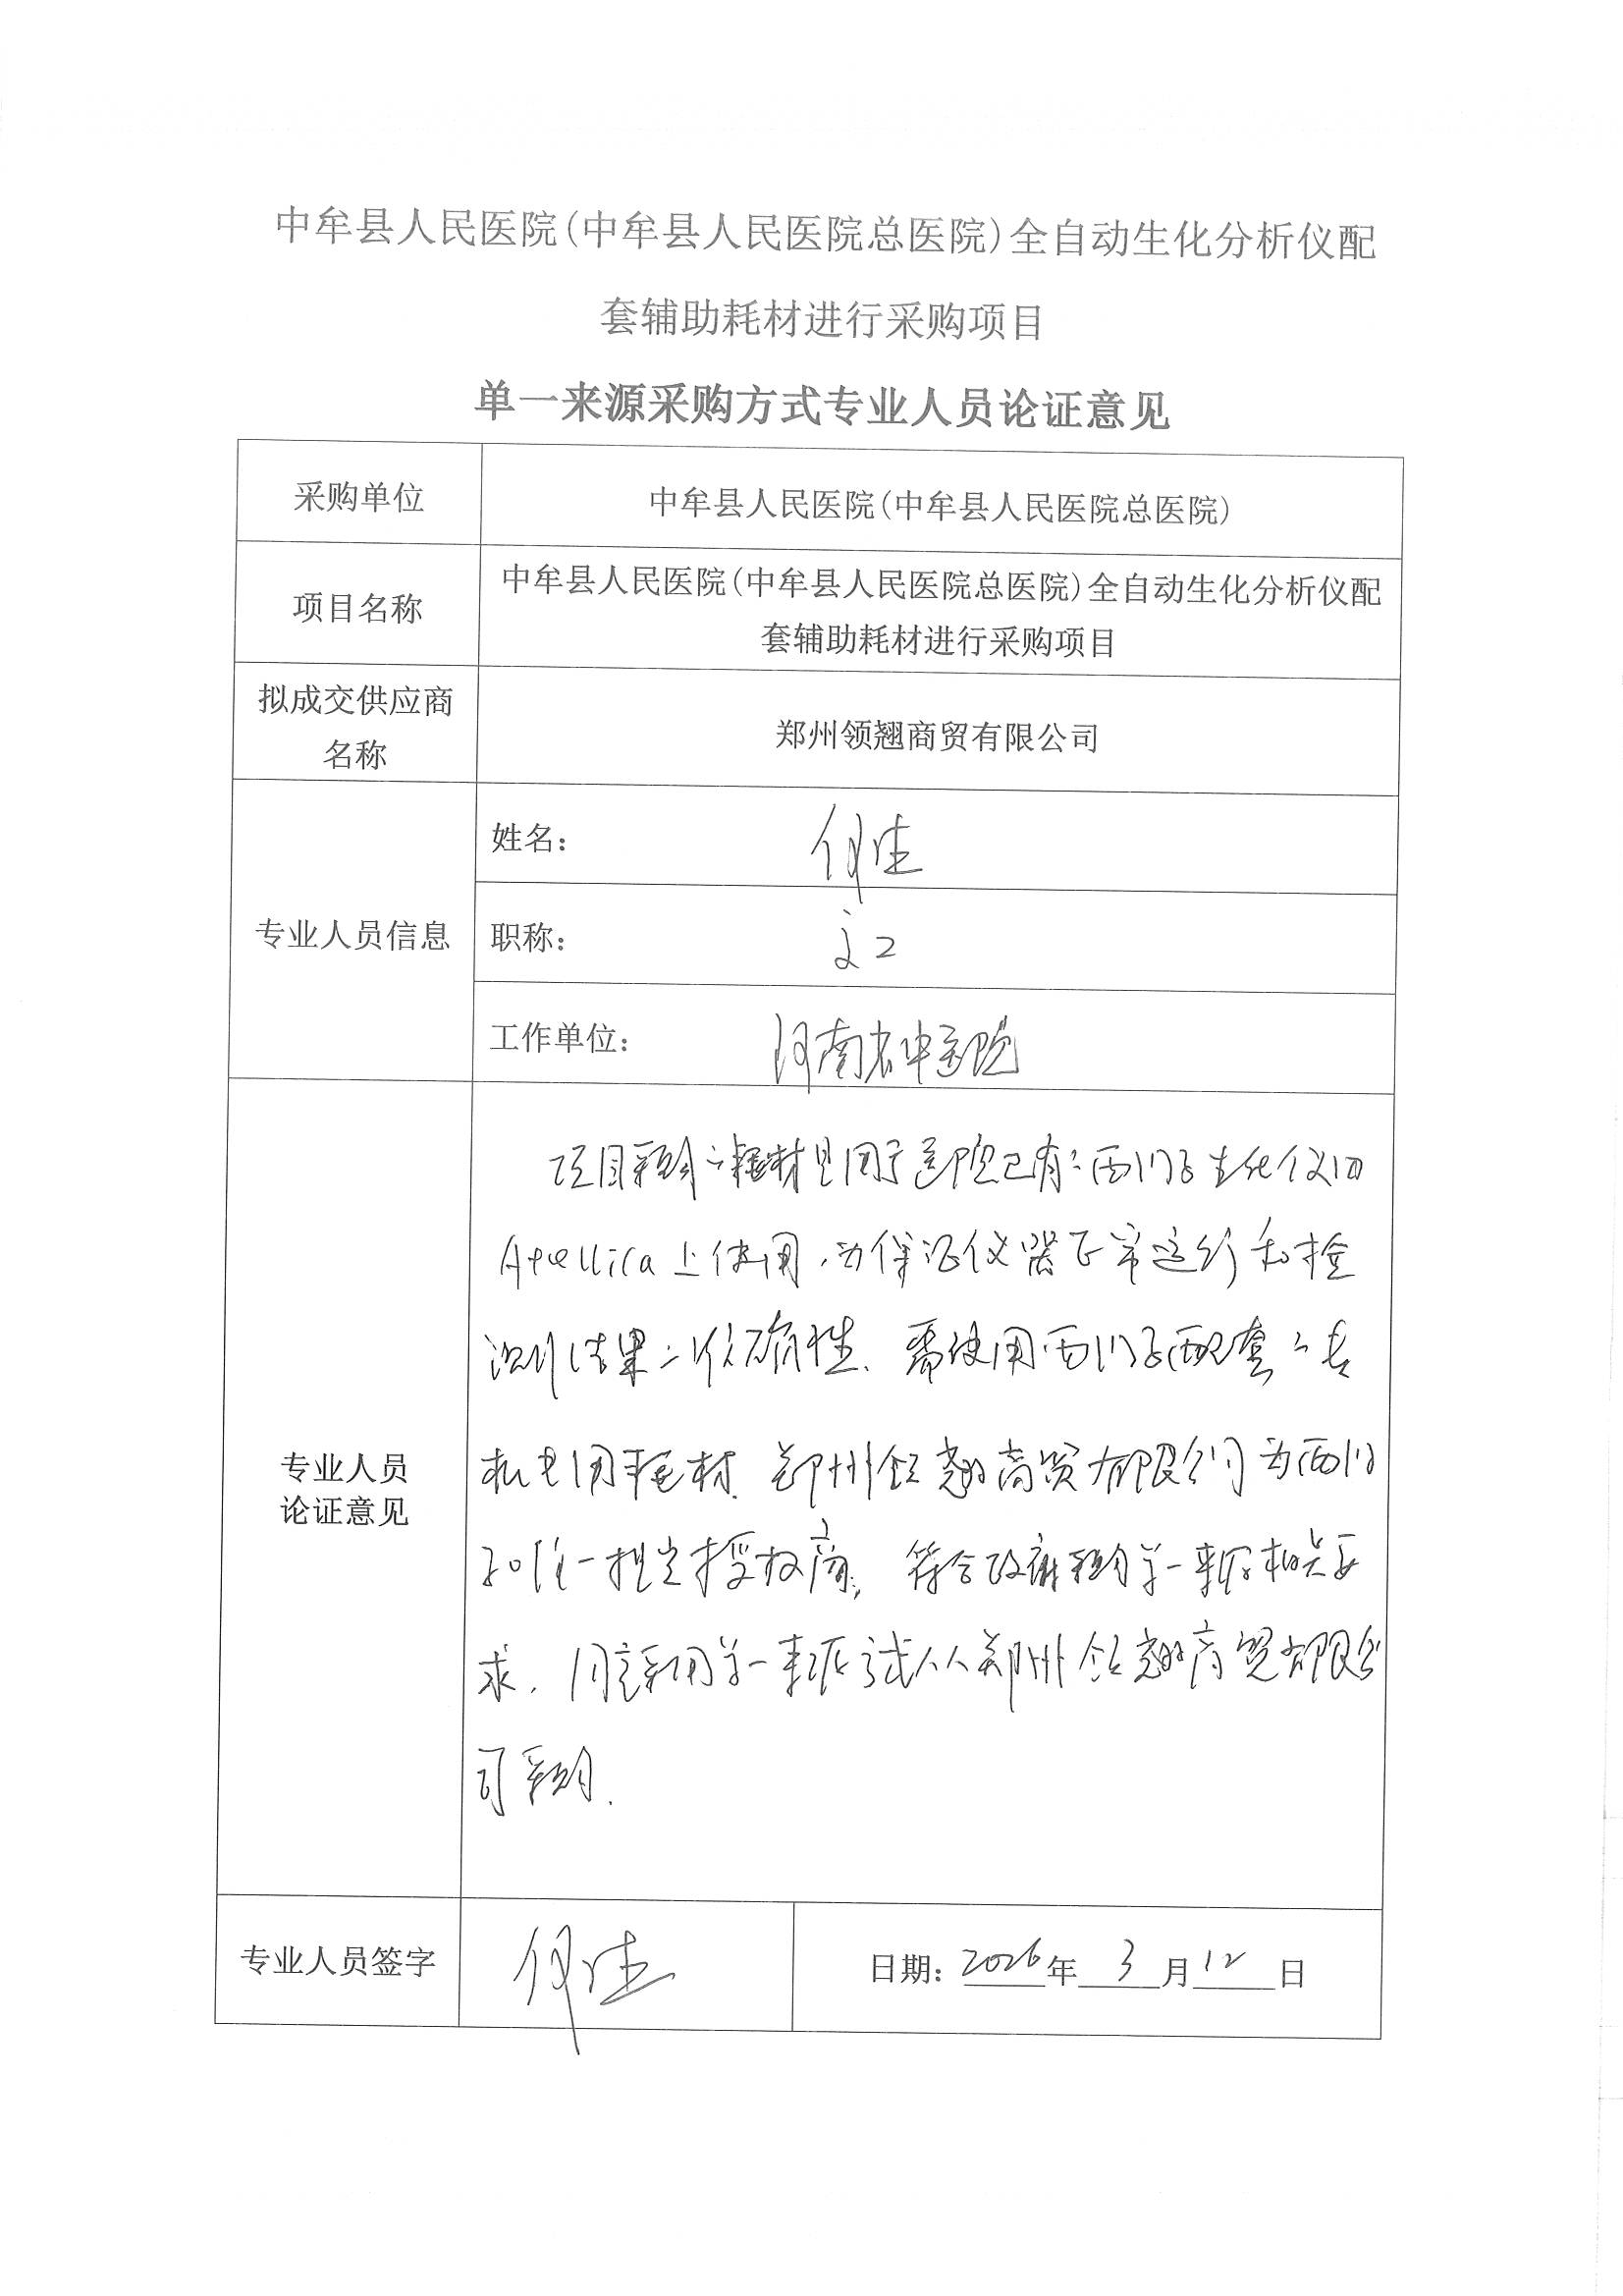 中牟县人民医院(中牟县人民医院总医院)全自动生化分析仪配
套辅助耗材进行采购项目
单一来源采购方式专业人员论证意见
采购单位
中牟县人民医院(中牟县人民医院总医院)
项目名称
中牟县人民医院(中牟县人民医院总医院)全自动生化分析仪配
套辅助耗材进行采购项目
拟成交供应商
名称
郑州领翘商贸有限公司
专业人员信息
姓名：
职称：
工作单位： 河南省中医院
专业人员
论证意见
项目采购的耗材是用于医院已有的西门子生化仪
Atellica上使用，为保证仪器正常运行和检
测结果的准确性、需使用西门子配套的专
机专用耗材. 郑州领翘商贸有限公司为西门
子唯一指定授权商, 符合政府采购单一来源相关要
求. 同意采用单一来源方式从郑州领翘商贸有限公
司采购.
专业人员签字
日期：2026年3月12日